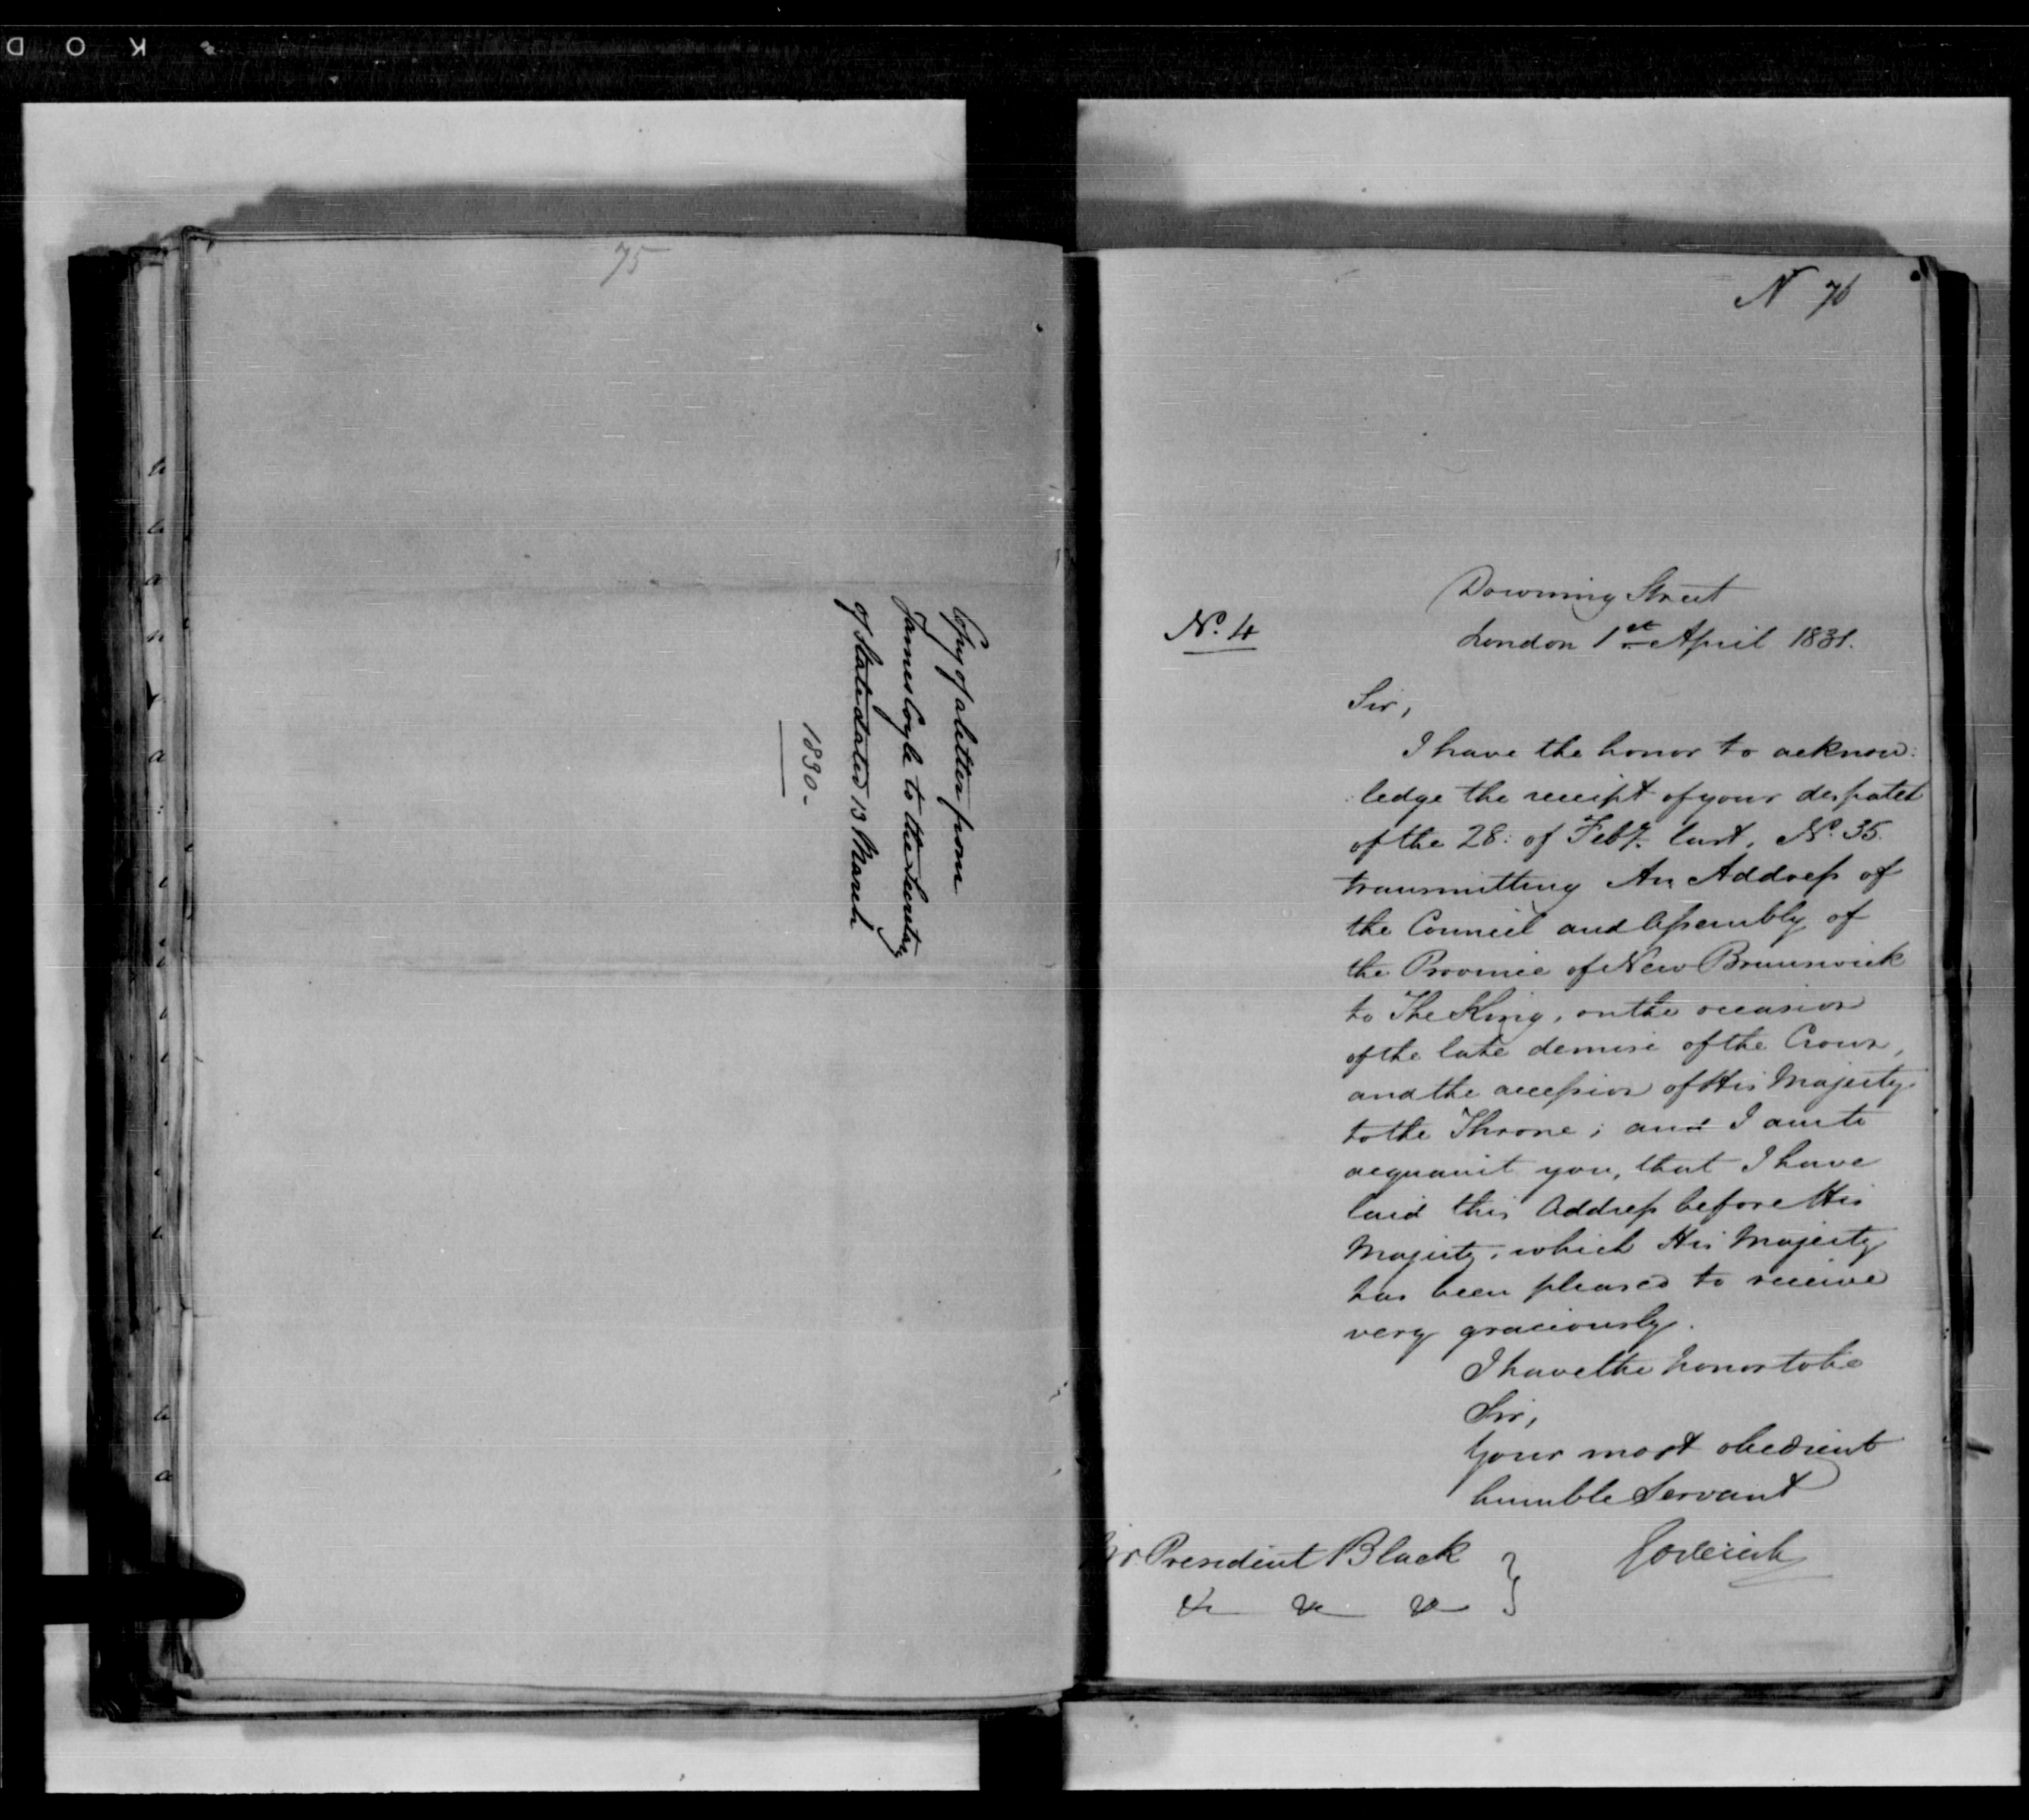 75
Copy of a letter from
James Cogle to the Secretary
of State dated 13 March
1830-
N 76
Downing Street
No. 4
London 1st April 1831.
Sir,
I have the honor to acknow:
:ledge the receipt of your despatch
of the 28: of Feby. last, No. 35.
transmitting An Address of
the Council and Assembly of
the Province of New Brunswick
to The King, on the occasion
of the late demise of the Crown,
and the accession of His Majesty
to the Throne; and I am to
acquaint you, that I have
laid this Address before His
Majesty, which His Majesty
has been pleased to receive
very graciously.
I have the honor to be
Sir,
Your most obedient
humble Servant
Goderich
Mr. President Black
&c &c &c